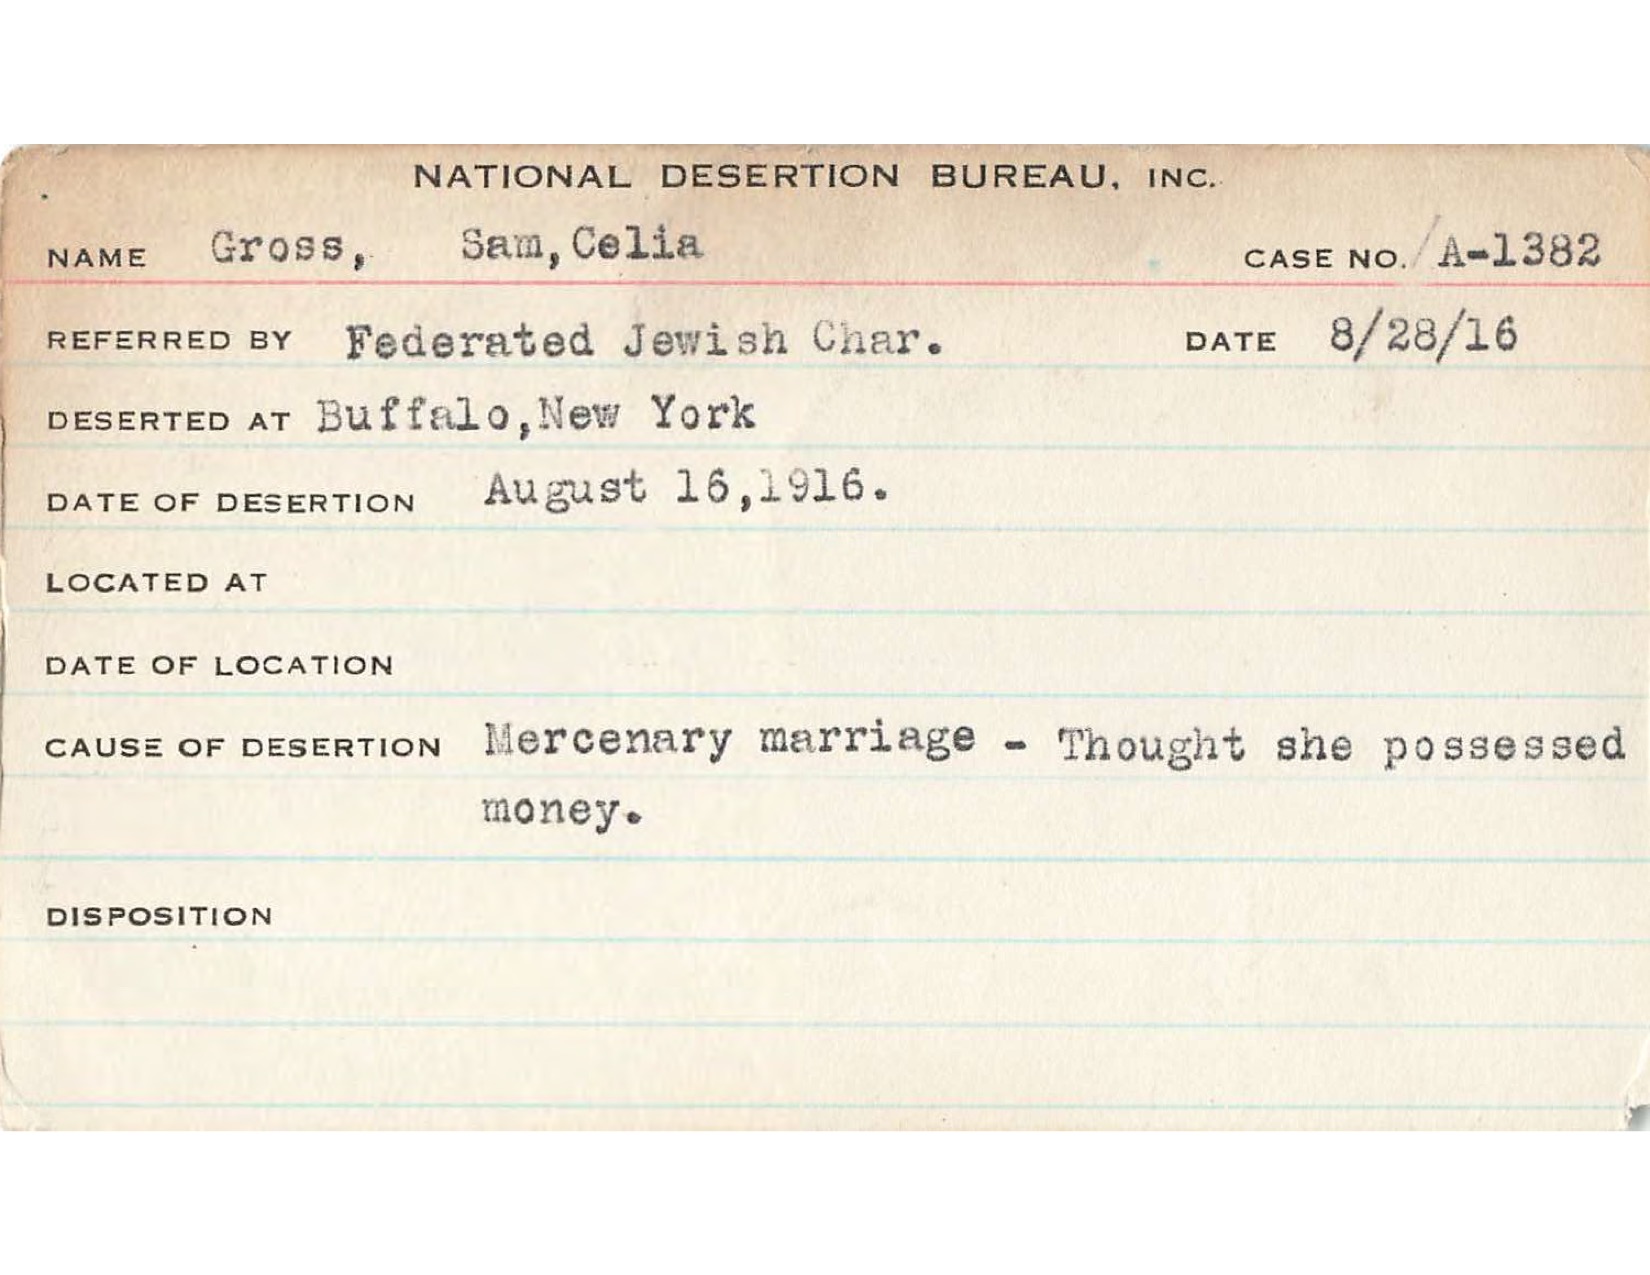 NATIONAL DESERTION BUREAU, INC.
NAME Gross, Sam,Celia CASE NO. A-1382
REFERRED BY Federated Jewish Char. DATE 8/28/16
DESERTED AT Buffalo,New York
DATE OF DESERTION August 16,1916.
LOCATED AT
DATE OF LOCATION
CAUSE OF DESERTION Mercenary marriage - Thought she possessed
money.
DISPOSITION